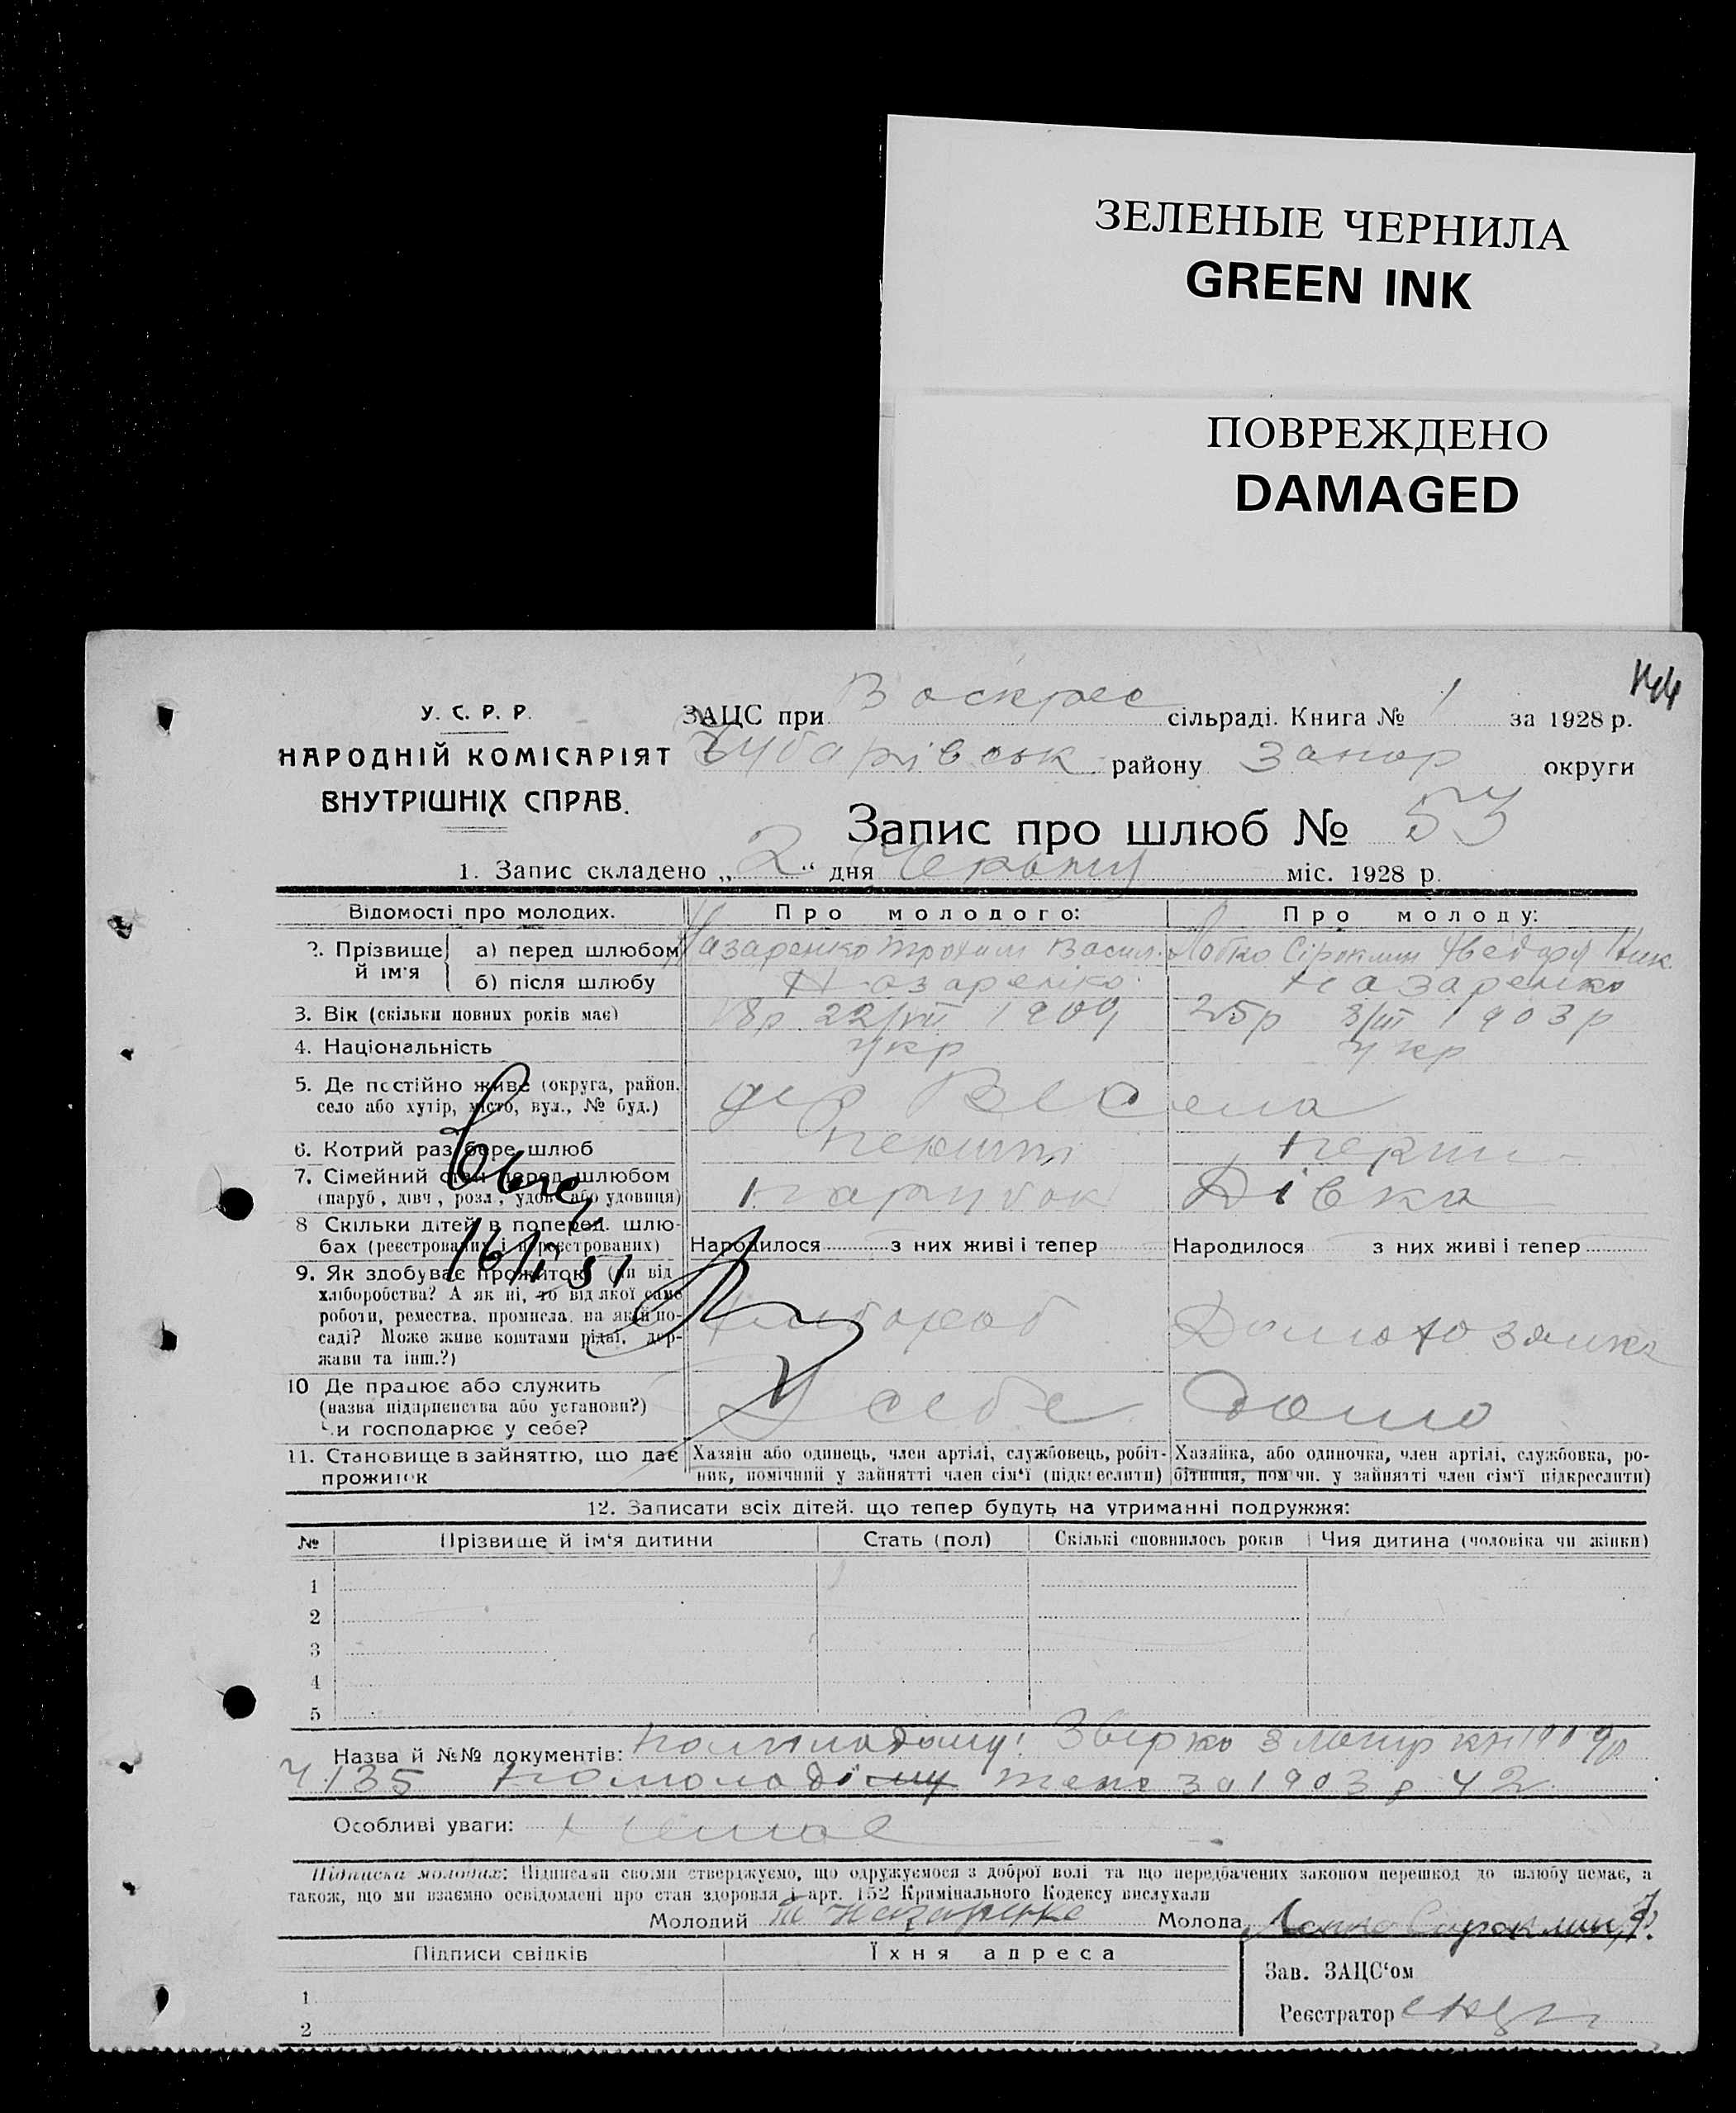 ЗЕЛЕНЫЕ ЧЕРНИЛА
GREEN INK
ПОВРЕЖДЕНО
DAMAGED
144
У. С. Р. Р.
НАРОДНІЙ КОМІСАРІЯТ
ВНУТРІШНІХ СПРАВ.
ЗАЦС при Воскрес сільраді. Книга № 1 за 1928 р.
Чубарівськ району Запор округи
Запис про шлюб № 53
1. Запис складено „2“ дня Червня міс. 1928 р.
Відомості про молодих. Про молодого: Про молоду:
2. Прізвище й ім'я а) перед шлюбом Назаренко Трохим Васил. Лобко
б) після шлюбу Назаренко Назаренко
3. Вік (скільки повних років має) 18р 22/VII 1909 25р 8/III 1903р
4. Національність укр укр
5. Де постійно живе (округа, район, село або хутір, місто, вул., № буд.)
6. Котрий раз бере шлюб перший перши
7. Сімейний стан перед шлюбом
(паруб, дівч, розл, удов або удовиця) парубок Дівка
8 Скільки дітей в поперед. шлюбах (реєстрованих і нереєстрованих) Народилося з них живі і тепер Народилося з них живі і тепер
16/II 31
9. Як здобуває прожиток (чи від
хліборобства? А як ні, то від якої саме
роботи, ремества, промисла, на якій по-
саді? Може живе коштами рідні, дер-
жави та інш.?)
Хлібороб
10 Де працює або служить
(назва підприємства або установи?)
Чи господарює у себе?
У себе Дома
11. Становище в зайняттю, що дає
прожиток
Хазяін або одинець, член артілі, службовець, робіт-
ник, помічний у зайнятті член сім'ї (підкреслити)
Хазяйка, або одиночка, член артілі, службовка, ро-
бітниця, помічн. у зайнятті член сім'ї підкреслити)
12. Записати всіх дітей. що тепер будуть на утриманні подружжя:
№ Прізвище й ім'я дитини Стать (пол) Скількі сповнилось років Чия дитина (чоловіка чи жінки)
1
2
3
4
5
Назва й №№ документів: по молодому:
Ч 135 по молодій теж за 1903 р Ч 2
Особливі уваги: немає
Підписка молодих: Підписами своїми стверджуємо, що одружуємося з доброї волі та що передбачених законом перешкод до шлюбу немає, а
також, що ми взаємно освідомлені про стан здоровля і арт. 152 Кримінального Кодексу вислухали
Молодий Т Назаренко Молода
Підписи свідків Їхня адреса
1
2
Зав. ЗАЦС'ом
Реєстратор